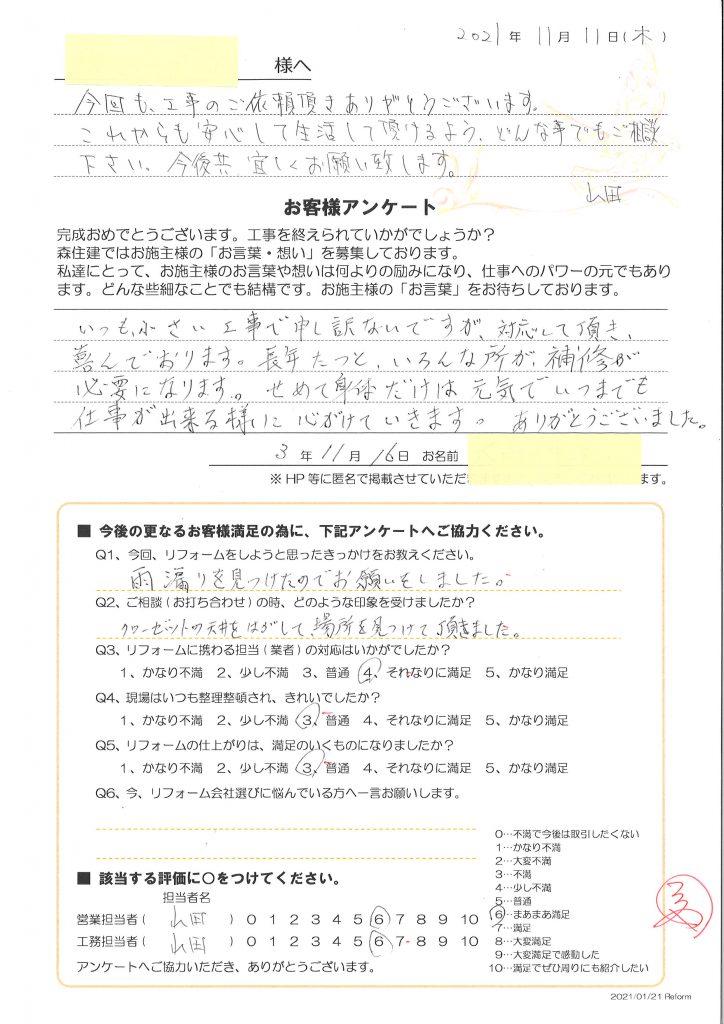 2021年 11月 11日(木)
様へ
今回も、工事のご依頼頂きありがとうございます。
これからも安心して生活して頂けるよう、どんな事でもご相談
下さい、今後共、宜しくお願い致します。
山田
お客様アンケート
完成おめでとうございます。工事を終えられていかがでしょうか？
森住建ではお施主様の「お言葉・想い」を募集しております。
私達にとって、お施主様のお言葉や想いは何よりの励みになり、仕事へのパワーの元でもあり
ます。どんな些細なことでも結構です。お施主様の「お言葉」をお待ちしております。
いつも小さい工事で申し訳ないですが、対応して頂き、
喜んでおります。長年たつと、いろんな所が、補修が
必要になります。せめて身体だけは元気でいつまでも
仕事が出来る様に心がけていきます。ありがとうございました。
3年 11月 16日 お名前
※HP等に匿名で掲載させていただ ます。
■ 今後の更なるお客様満足の為に、下記アンケートへご協力ください。
Q1、今回、リフォームをしようと思ったきっかけをお教えください。
雨漏りを見つけたのでお願いをしました。
Q2、ご相談（お打ち合わせ）の時、どのような印象を受けましたか？
クローゼットの天井をはがして、場所を見つけて頂きました。
Q3、リフォームに携わる担当（業者）の対応はいかがでしたか？
1、かなり不満 2、少し不満 3、普通 4、それなりに満足 5、かなり満足
Q4、現場はいつも整理整頓され、きれいでしたか？
1、かなり不満 2、少し不満 3、普通 4、それなりに満足 5、かなり満足
Q5、リフォームの仕上がりは、満足のいくものになりましたか？
1、かなり不満 2、少し不満 3、普通 4、それなりに満足 5、かなり満足
Q6、今、リフォーム会社選びに悩んでいる方へ一言お願いします。
0…不満で今後は取引したくない
1…かなり不満
2…大変不満
3…不満
4…少し不満
5…普通
6…まあまあ満足
7…満足
8…大変満足
9…大変満足で感動した
10…満足でぜひ周りにも紹介したい
■ 該当する評価に○をつけてください。
担当者名
営業担当者（ 山田 ）0 1 2 3 4 5 6 7 8 9 10
工務担当者（ 山田 ）0 1 2 3 4 5 6 7 8 9 10
アンケートへご協力いただき、ありがとうございます。
2021/01/21 Reform